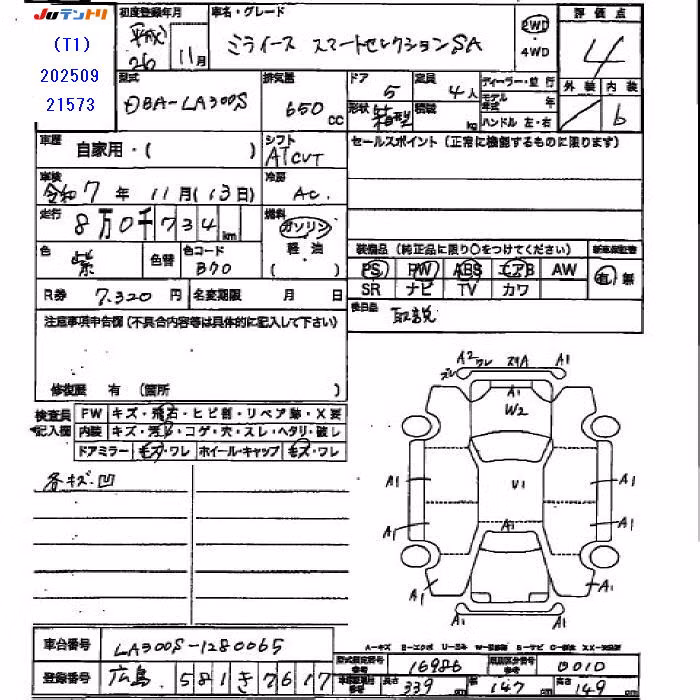 JUテントリ
(T1)
202509
21573
初度登録年月
平成
26 11月
車名・グレード
ミライース スマートセレクションSA
2WD
・4WD
評価点
4
型式
DBA-LA300S
排気量
650 cc
ドア
5
定員
4人
形状
箱型
積載
kg
ディーラー・並行
モデル年式 年
ハンドル 左・右
外装 内装
b
車歴
自家用・( )
シフト
AT CVT
車検
令和7年 11月(13日)
冷房
AC.
走行
8万0千734km
燃料
ガソリン
軽油
( )
色
紫
色替
色コード
セールスポイント (正常に機能するものに限ります)
装備品 (純正品に限り○をつけてください)
新車保証書
PS PW ABS エアB AW
SR ナビ TV カワ
有・無
後日品
取説
R券 7.320円
名変期限 月 日
注意事項申告欄 (不具合内容等は具体的に記入して下さい)
修復歴 有 (箇所 )
検査員
記入欄
FW キズ・飛石・ヒビ割・リペア跡・X要
内装 キズ・汚レ・コゲ・穴・スレ・ヘタリ・破レ
ドアミラー キズ・ワレ ホイール・キャップ キズ・ワレ
各キズ.凹
A2 ワレ
A1
A1
W2
A1
A1
U1
A1
A1
A1
A1
A1
A1
A1
車台番号 LA300S-1280065
登録番号 広島 581 き 7617
型式指定番号 16986
類別区分番号 0010
長さ 339 cm
幅 147 cm
高さ 149 cm